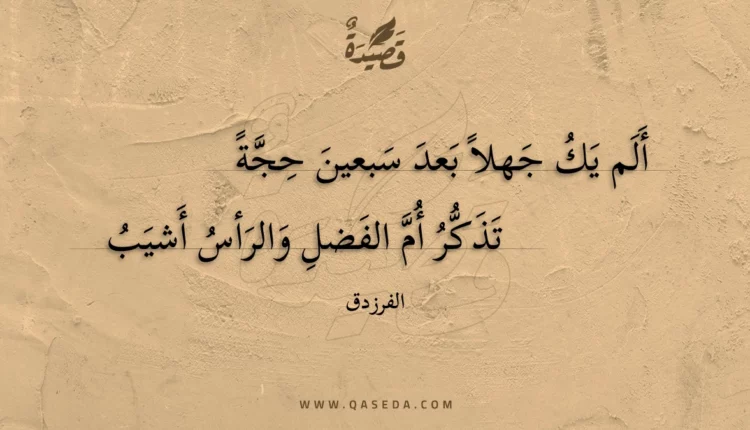 قَصِيدَةٌ
أَلَم يَكُ جَهلاً بَعدَ سَبعينَ حِجَّةً
تَذَكُّرُ أُمَّ الفَضلِ وَالرَأسُ أَشيَبُ
الفرزدق
WWW.QASEDA.COM